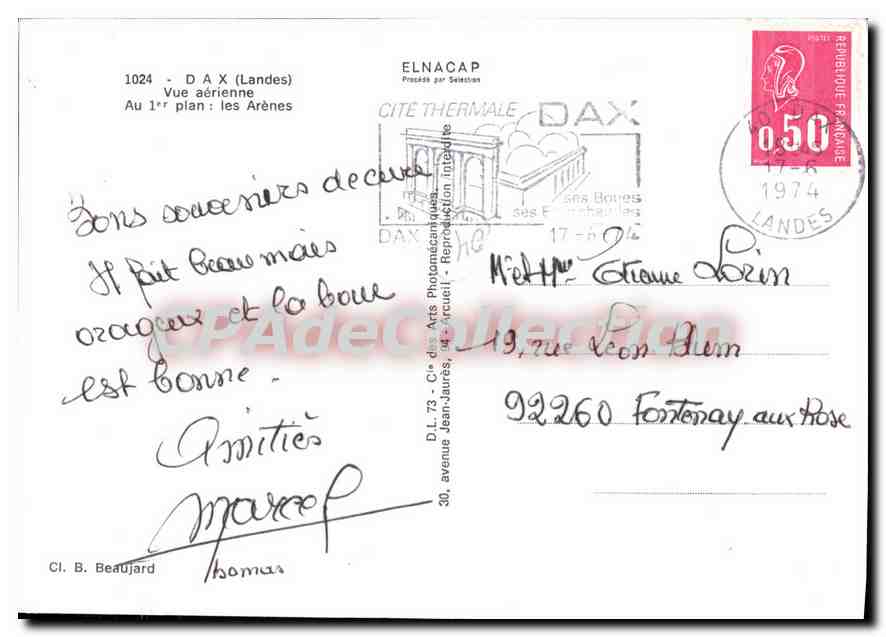 1024 - DAX (Landes)
Vue aérienne
Au 1er plan : les Arènes
ELNACAP
Procédé par Sélection
CITÉ THERMALE DAX
ses Boues
ses Eaux chaudes
DAX 17-6
RÉPUBLIQUE FRANÇAISE
POSTES
0,50
17-6
1974
LANDES
Bons souvenirs de cure
Il fait beau mais
orageux et la boue
est bonne.
Amitiés
Marcel
Thomas
Cl. B. Beaujard
D.L. 73 - Cie des Arts Photomécaniques
30, avenue Jean-Jaurès, 94 - Arcueil - Reproduction interdite
Mr et Mme Etienne Lorin
19, rue Léon Blum
92260 Fontenay aux Rose
CPAdeCollection